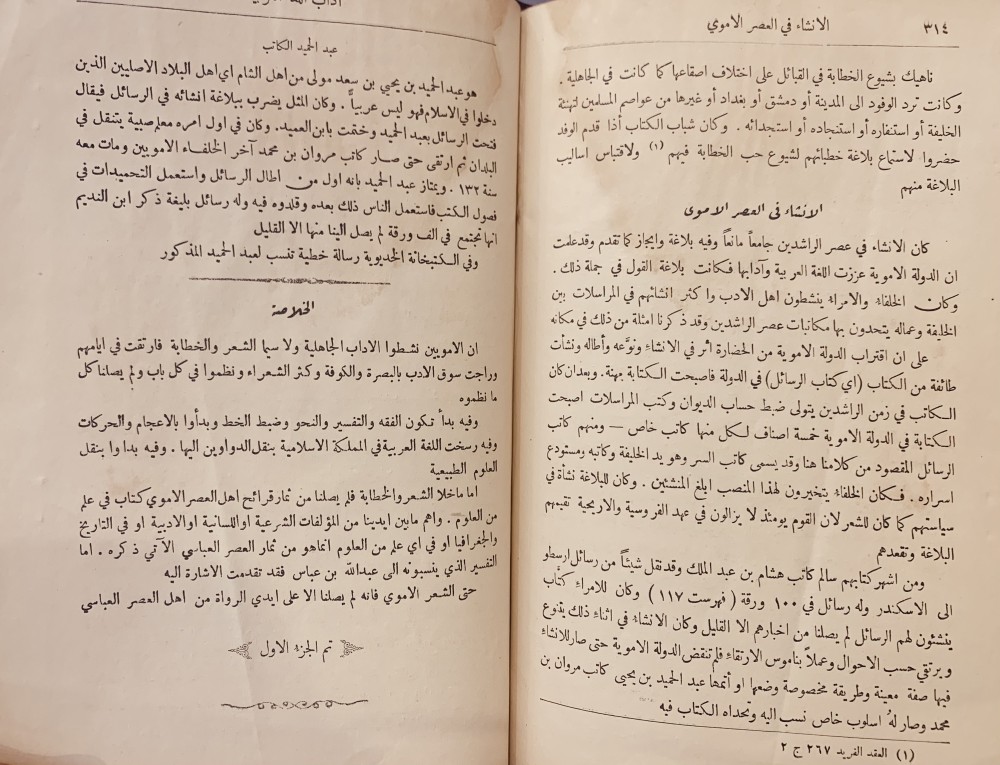 ٣١٤
الانشاء في العصر الاموي
ناهيك بشيوع الخطابة في القبائل على اختلاف اصقاعها كما كانت في الجاهلية .
وكانت ترد الوفود الى المدينة أو دمشق أو بغداد أو غيرها من عواصم المسلمين لتهنئة
الخليفة أو استنفاره أو استنجاده أو استجدائه . وكان شباب الكتاب أذا قدم الوفد
حضروا لاستماع بلاغة خطبائهم لشيوع حب الخطابة فيهم (١) ولاقتباس اساليب
البلاغة منهم
الانشاء فى العصر الاموى
كان الانشاء في عصر الراشدين جامعاً مانعاً وفيه بلاغة وايجاز كما تقدم وقد علمت
ان الدولة الاموية عززت اللغة العربية وآدابها فكانت بلاغة القول في جملة ذلك .
وكان الخلفاء والامراء ينشطون اهل الادب واكثر انشائهم في المراسلات بين
الخليفة وعماله يتحدون بها مكاتبات عصر الراشدين وقد ذكرنا امثلة من ذلك في مكانه
على ان اقتراب الدولة الاموية من الحضارة اثر في الانشاء ونوّعه وأطاله ونشأت
طائفة من الكتاب (اي كتاب الرسائل) في الدولة فاصبحت الكتابة مهنة . وبعد ان كان
الكاتب في زمن الراشدين يتولى ضبط حساب الديوان وكتب المراسلات اصبحت
الكتابة في الدولة الاموية خمسة اصناف لكل منها كاتب خاص — ومنهم كاتب
الرسائل المقصود من كلامنا هنا وقد يسمى كاتب السر وهو يد الخليفة وكاتبه ومستودع
اسراره . فكان الخلفاء يتخيرون لهذا المنصب ابلغ المنشئين . وكان للبلاغة نشأة في
سياستهم كما كان للشعر لان القوم يومئذ لا يزالون في عهد الفروسية والاريحية تقيمهم
البلاغة وتقعدهم
ومن اشهر كتابهم سالم كاتب هشام بن عبد الملك وقد نقل شيئاً من رسائل ارسطو
الى الاسكندر وله رسائل في ١٠٠ ورقة ( فهرست ١١٧ ) وكان للامراء كتَّاب
ينشئون لهم الرسائل لم يصلنا من اخبارهم الا القليل وكان الانشاء في اثناء ذلك يتنوع
ويرتقي حسب الاحوال وعملاً بناموس الارتقاء فلم تنقض الدولة الاموية حتى صار للانشاء
فيها صفة معينة وطريقة مخصوصة وضعها او أتمها عبد الحميد بن يحيى كاتب مروان بن
محمد وصار لهُ اسلوب خاص نسب اليه وتحداه الكتاب فيه
(١) العقد الفريد ٢٦٧ ج ٢
عبد الحميد الكاتب
هو عبد الحميد بن يحيى بن سعد مولى من اهل الشام اي اهل البلاد الاصليين الذين
دخلوا في الاسلام فهو ليس عربياً . وكان المثل يضرب ببلاغة انشائه في الرسائل فيقال
فتحت الرسائل بعبد الحميد وختمت بابن العميد . وكان في اول امره معلم صبية يتنقل في
البلدان ثم ارتقى حتى صار كاتب مروان بن محمد آخر الخلفاء الامويين ومات معه
سنة ١٣٢ . ويمتاز عبد الحميد بانه اول من اطال الرسائل واستعمل التحميدات في
فصول الكتب فاستعمل الناس ذلك بعده وقلدوه فيه وله رسائل بليغة ذكر ابن النديم
انها تجتمع في الف ورقة لم يصل الينا منها الا القليل
وفي الكتبخانة الخديوية رسالة خطية تنسب لعبد الحميد المذكور
الخلاصة
ان الامويين نشطوا الاداب الجاهلية ولا سيما الشعر والخطابة فارتقت في ايامهم
وراجت سوق الادب بالبصرة والكوفة وكثر الشعراء ونظموا في كل باب ولم يصلنا كل
ما نظموه
وفيه بدأ تكون الفقه والتفسير والنحو وضبط الخط وبدأوا بالاعجام والحركات
وفيه رسخت اللغة العربية في المملكة الاسلامية بنقل الدواوين اليها . وفيه بداوا بنقل
العلوم الطبيعية
اما ما خلا الشعر والخطابة فلم يصلنا من ثمار قرائح اهل العصر الاموي كتاب في علم
من العلوم . واهم ما بين ايدينا من المؤلفات الشرعية او اللسانية او الادبية او في التاريخ
والجغرافيا او في اي علم من العلوم انما هو من ثمار العصر العباسي الآتي ذكره . اما
التفسير الذي ينسبونه الى عبد الله بن عباس فقد تقدمت الاشارة اليه
حتى الشعر الاموي فانه لم يصلنا الا على ايدي الرواة من اهل العصر العباسي
تم الجزء الاول